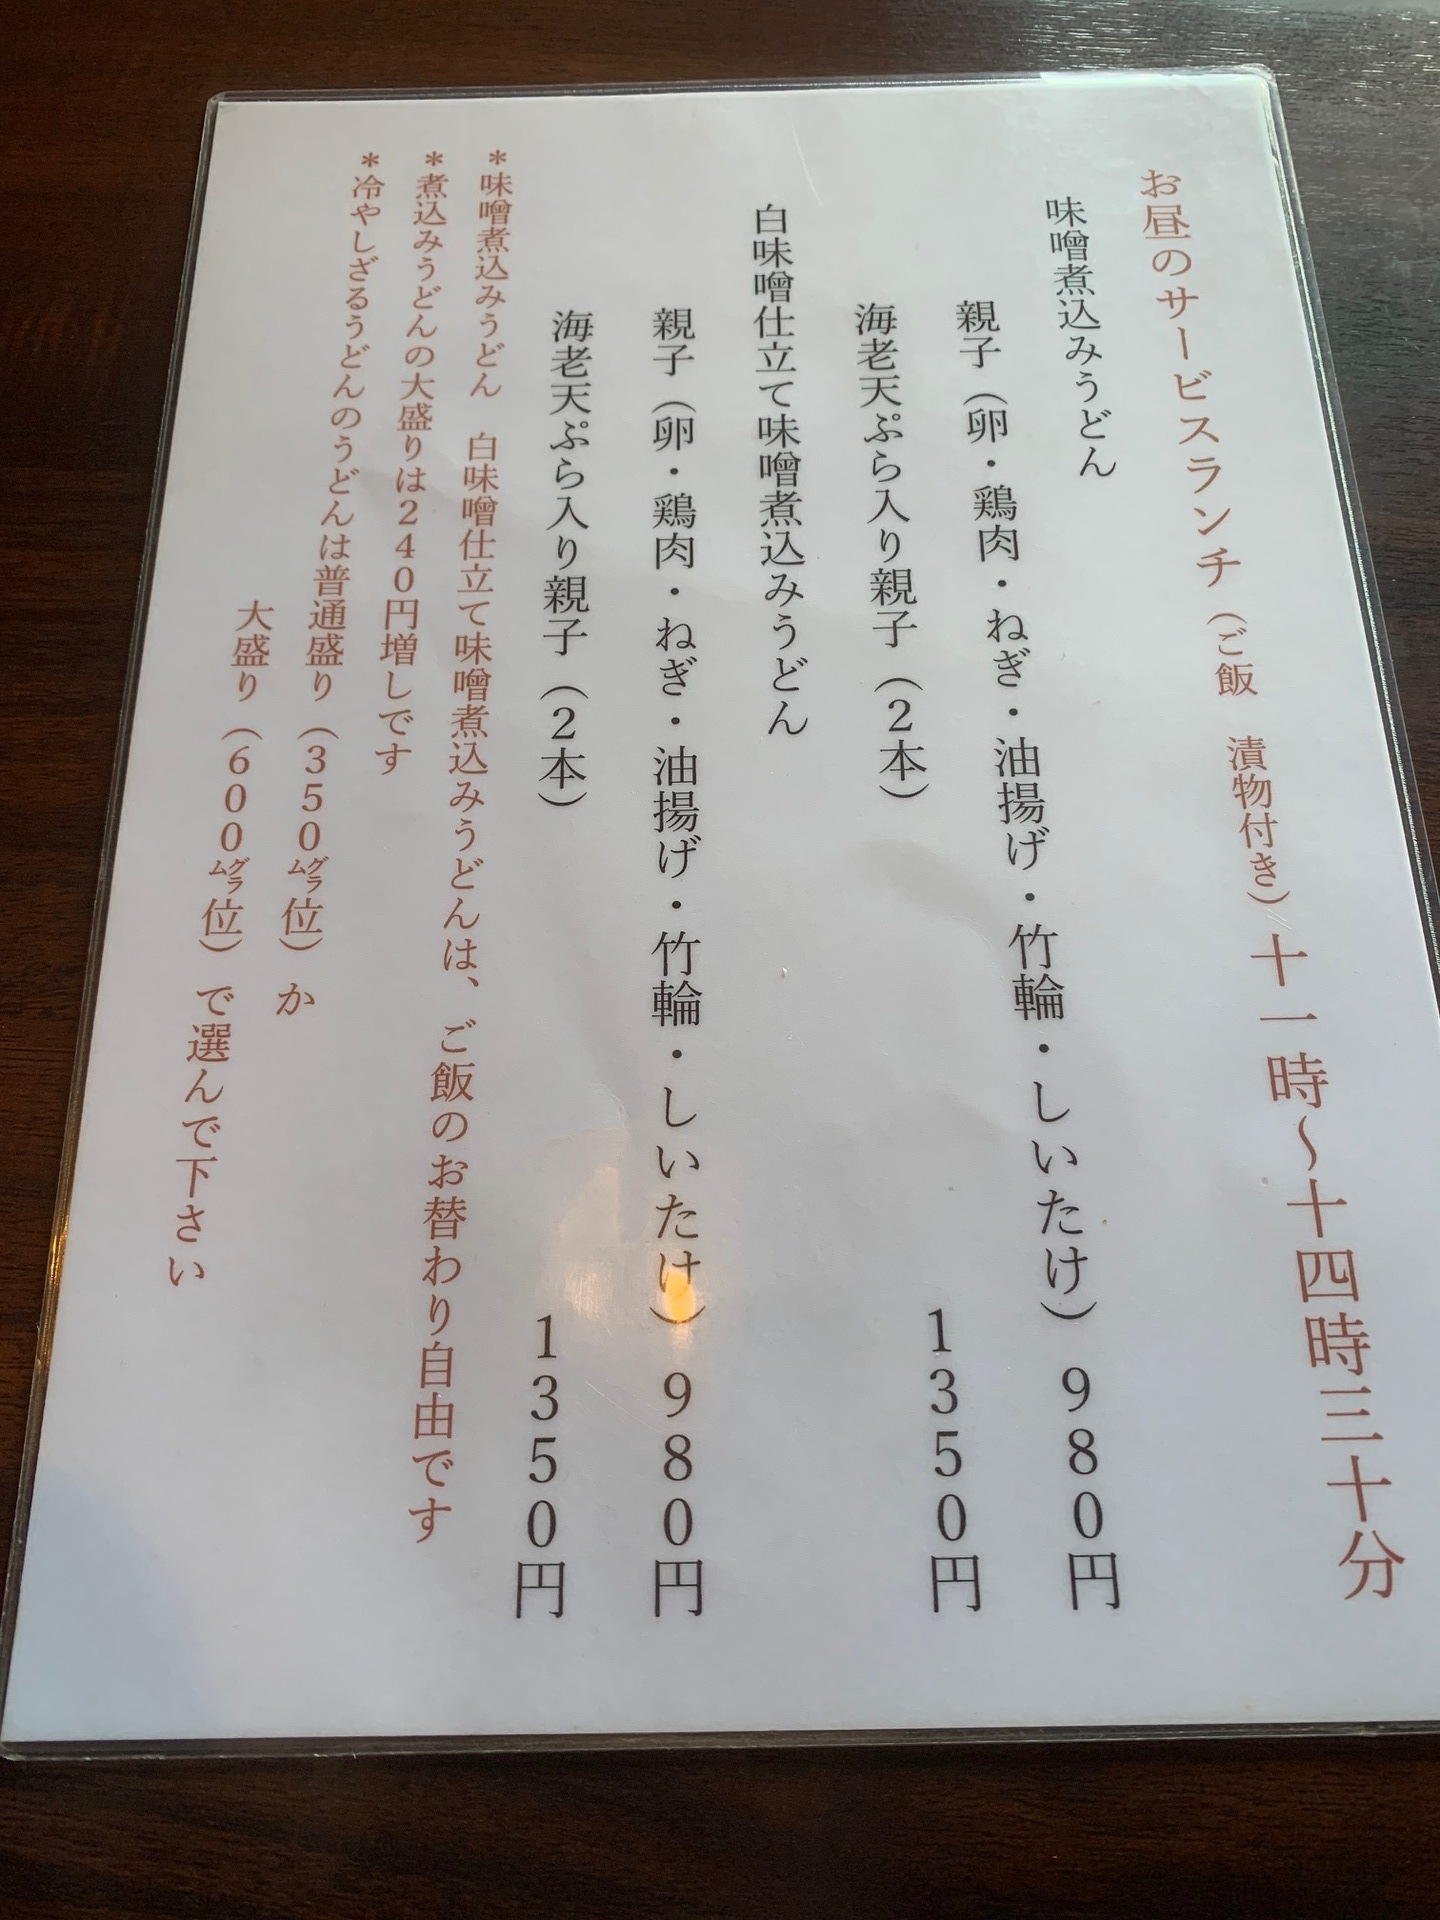 お昼のサービスランチ（ご飯　漬物付き）十一時～十四時三十分
味噌煮込みうどん
親子（卵・鶏肉・ねぎ・油揚げ・竹輪・しいたけ）980円
海老天ぷら入り親子（2本）　1350円
白味噌仕立て味噌煮込みうどん
親子（卵・鶏肉・ねぎ・油揚げ・竹輪・しいたけ）980円
海老天ぷら入り親子（2本）　1350円
＊味噌煮込みうどん　白味噌仕立て味噌煮込みうどんは、ご飯のお替わり自由です
＊煮込みうどんの大盛りは240円増しです
＊冷やしざるうどんのうどんは普通盛り（350㌘位）か
大盛り（600㌘位）で選んで下さい